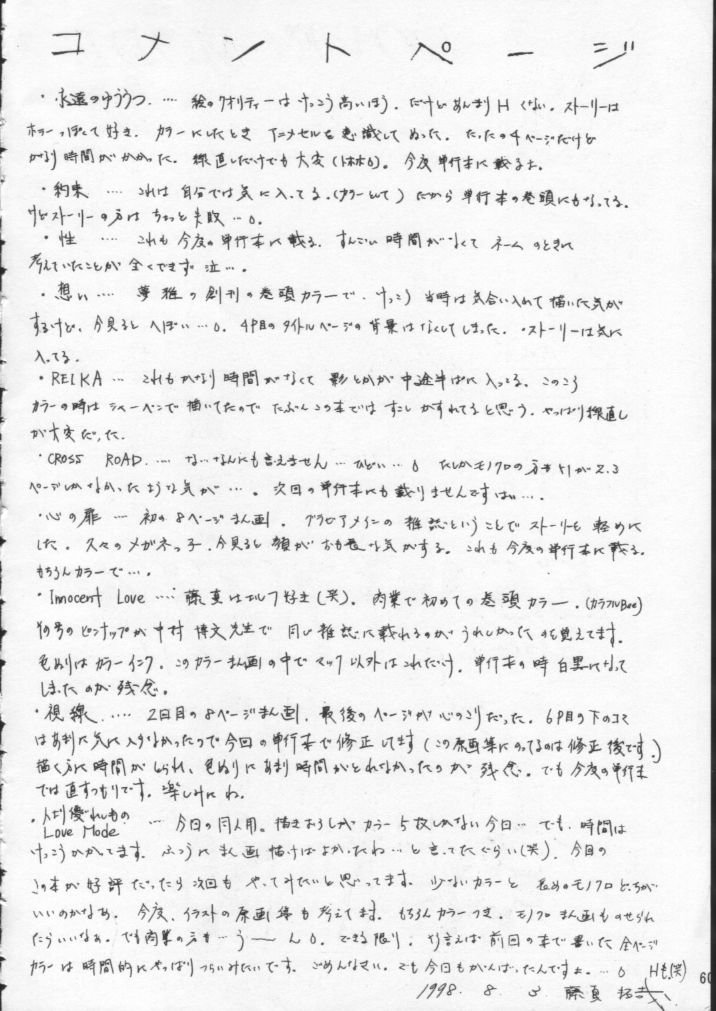 コメントページ
・永遠のゆううつ．…. 絵のクオリティーは けっこう高いほう．だけど あんまり H くない．ストーリーは
ホラーっぽくて好き．カラーにしたとき アニメセルを意識して ぬった．たったの4ページだけど
かなり時間がかかった．線直しだけでも大変（トホホ）。今度単行本に載るよ．
・約束 …. これは 自分では気に入ってる．（カラーとして）だから 単行本の巻頭にもなってる．
けどストーリーの方は ちょっと失敗…。
・性 …. これも 今度の単行本に載る．すんごい 時間がなくて ネームのときに
考えていたことが 全くできず 泣…．
・想い…. 夢雅の創刊の巻頭カラーで．けっこう 当時は気合い入れて 描いた気が
するけど、今見ると へぼい…。4P目のタイトルページの背景はなくしてしまった．・ストーリーは気に
入ってる．
・REIKA … これもかなり 時間がなくて 影とかが中途半ぱに入ってる．このころ
カラーの時は シャーペンで描いてたので たぶんこの本では すこし かすれてると思う．やっぱり線直し
が大変だった．
・CROSS ROAD．…. な…なんにも言えません…ひどい…。たしかモノクロの方も 2.3
ページしかなかったような気が…．。次回の単行本にも載りませんですはい…．
・心の扉 … 初の8ページまん画．グラビアメインの 雑誌ということで ストーリーを 軽めに
した．久々のメガネっ子．今見ると 顔が な気がする．これも今度の単行本に載る．
もちろんカラーで…．
・Innocent Love …. 藤真はエルフ好き（笑）．商業で初めての巻頭カラー．（カラフルBee）
その号のピンナップが 中村 博文先生で 同じ雑誌に載れるのが うれしかったのを覚えてます．
色ぬりはカラーインク．このカラーまん画の中で マック以外はこれだけ．単行本の時 白黒になって
しまったのが残念。
・視線．…. 2回目の8ページまん画．最後のページが心のこりだった。6P目の下のコマ
はあまり気に入らなかったので今回の単行本で修正してます（この原画集にのってるのは修正後です．）
描く方に時間がとられ、色ぬりにあまり時間がとれなかったのが残念．でも今度の単行本
では直すつもりです．楽しみにね．
・人より優れしもの
Love Mode … 今日の同人用。描きおろしが カラー5枚しかない今日… でも．時間は
けっこうかかってます．ふつうに まん画 描けばよかったね…と 言ってたぐらい（笑）．今日の
この本が好評だったら 次回も やってみたいと思ってます．少ないカラーと 長めのモノクロどっちが
いいのかなぁ．今度、イラストの原画集も考えてます．もちろんカラーつき．モノクロまん画ものせられ
たらいいなぁ．でも商業の方も…う——ん。できる限り．そう言えば 前回の本で書いた 全ページ
カラーは時間的にやっぱりつらいみたいです．ごめんなさい．でも今日もがんばったんですよ．…。Hも（笑）
1998. 8. 3. 藤真 拓哉
60